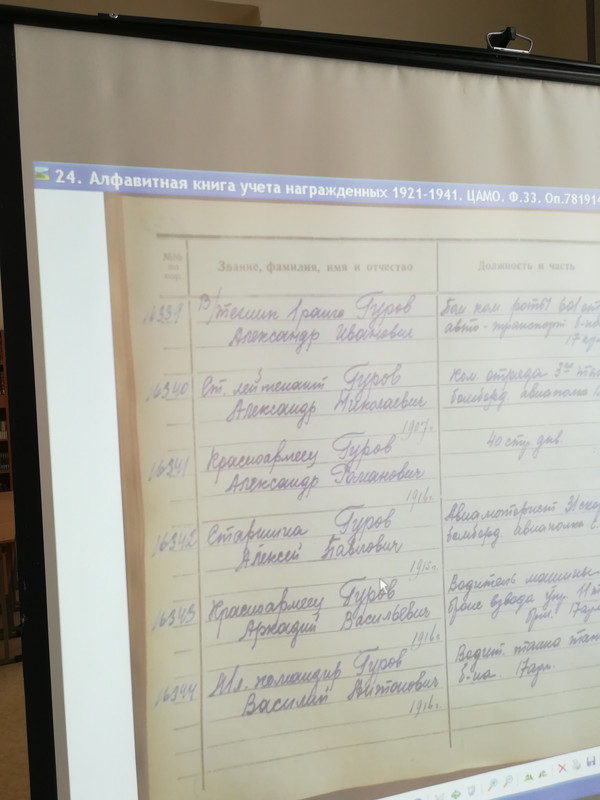 24. Алфавитная книга учета награжденных 1921-1941. ЦАМО. Ф.33. Оп.781914
Звание, фамилия, имя и отчество
Должность и часть
16339
В/техник 1 ранга Гуров
Александр Иванович
Пом ком роты
авто-транспорт
16340
Ст. лейтенант Гуров
Александр Николаевич
1917г.
Ком отряда
бомбард. авиаполка
16341
Красноармеец Гуров
Александр Романович
1916г.
40 стр див
16342
Старшина Гуров
Алексей Павлович
1915г.
Авиамоторист 31
бомбард. авиаполка
16343
Красноармеец Гуров
Аркадий Васильевич
1916г.
Водитель машины
броне взвода упр. 11
17 арм.
16344
Мл. командир Гуров
Василий Антонович
1916г.
Водит. танка
б-на. 17 арм.